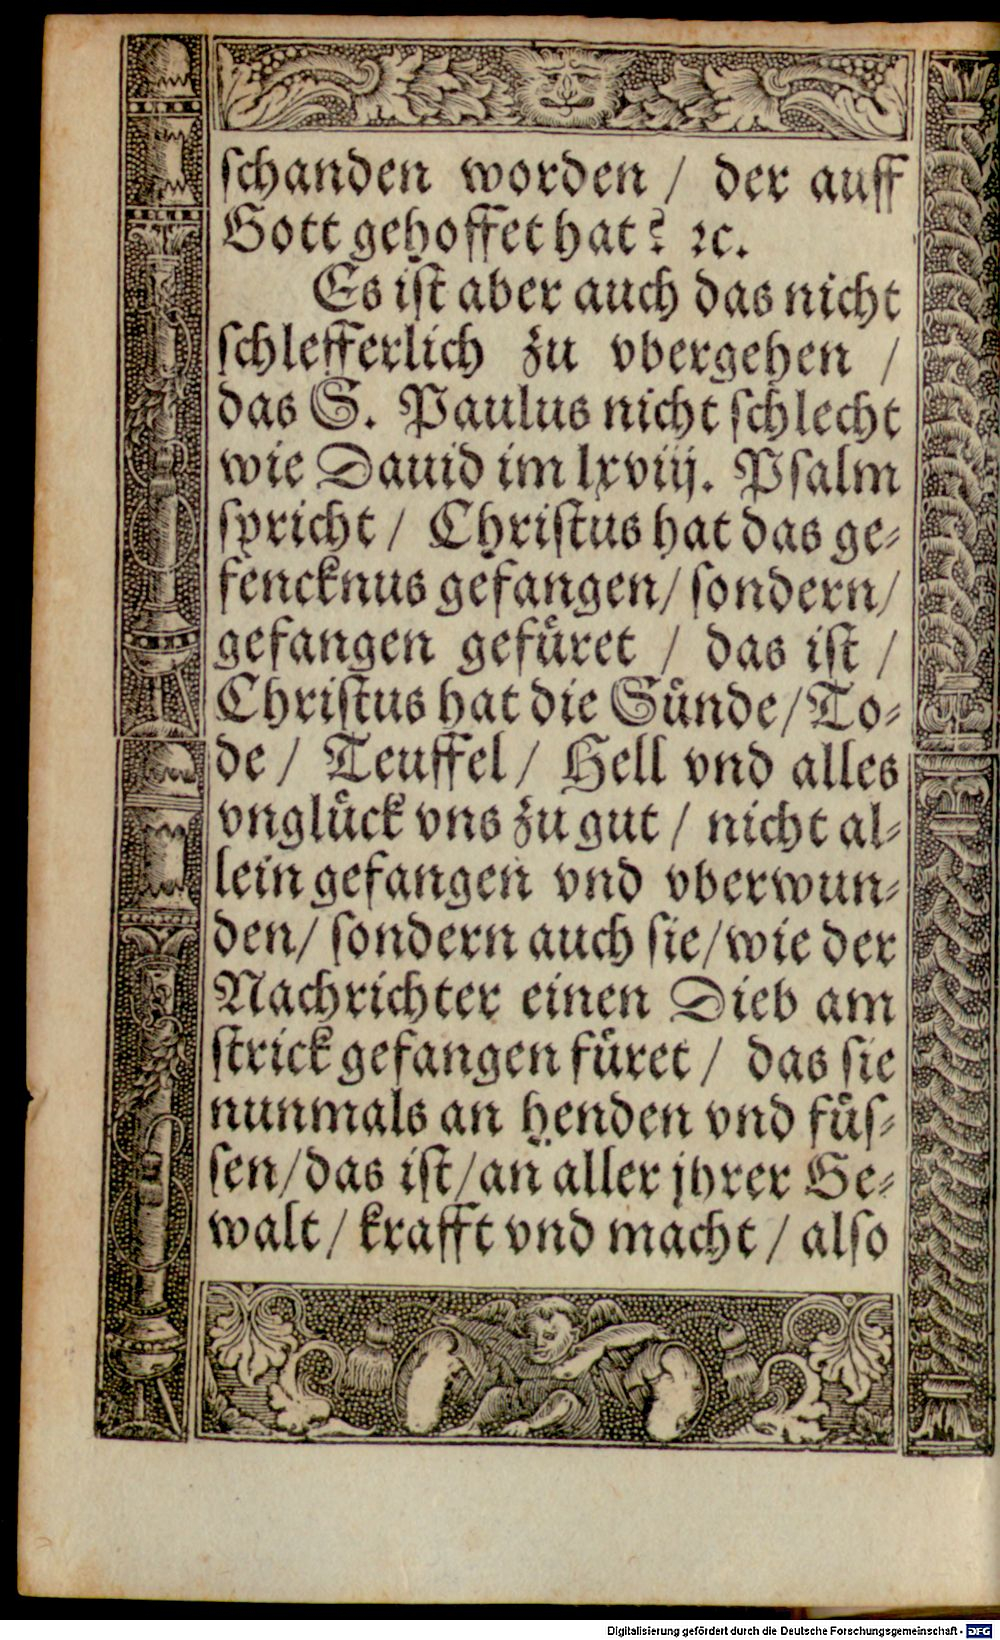 schanden worden / der auff
Gott gehoffet hat? ꝛc.
Es ist aber auch das nicht
schlefferlich zu vbergehen /
das S. Paulus nicht schlecht
wie Dauid im lxviij. Psalm
spricht / Christus hat das ge⸗
fencknus gefangen / sondern /
gefangen gefüret / das ist /
Christus hat die Sünde / To⸗
de / Teuffel / Hell vnd alles
vnglück vns zu gut / nicht al⸗
lein gefangen vnd vberwun⸗
den / sondern auch sie / wie der
Nachrichter einen Dieb am
strick gefangen füret / das sie
nunmals an henden vnd füs⸗
sen / das ist / an aller jhrer Ge⸗
walt / krafft vnd macht / also
Digitalisierung gefördert durch die Deutsche Forschungsgemeinschaft - DFG